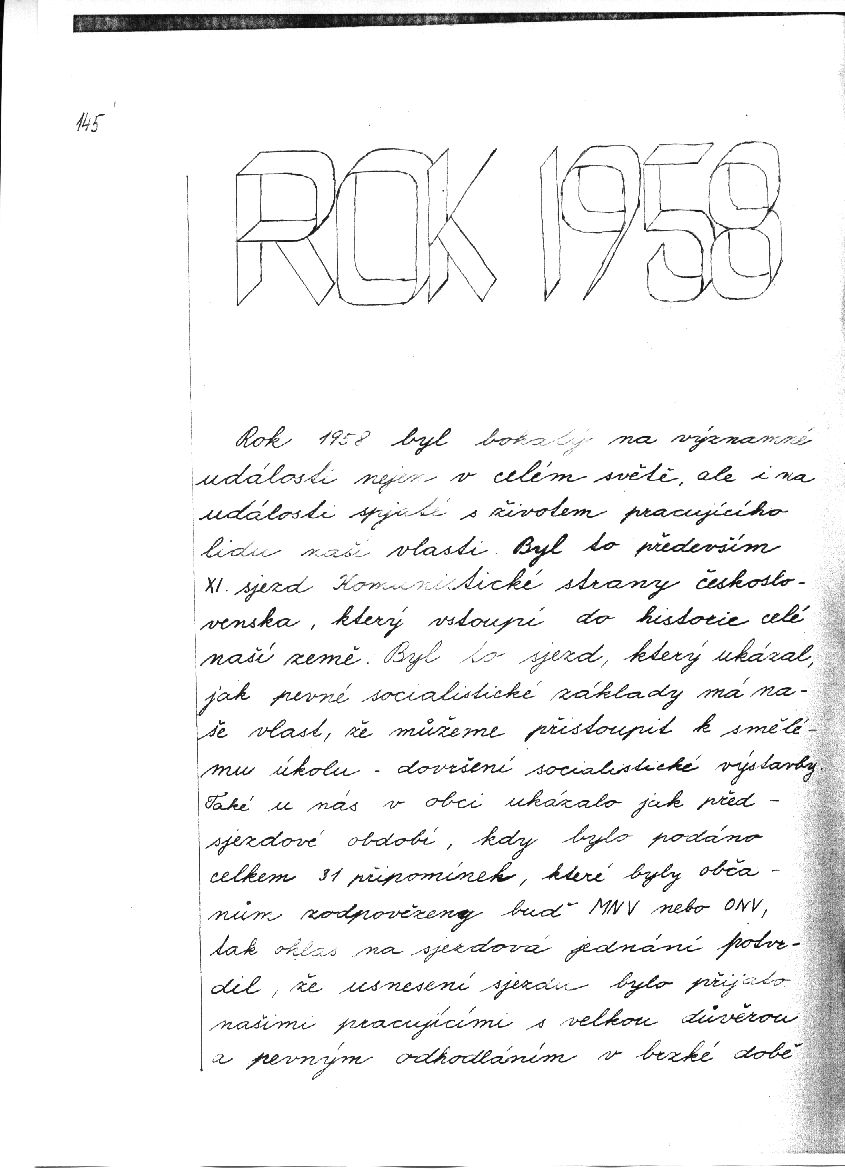 145
ROK 1958
Rok 1958 byl bohatý na významné
události nejen v celém světě, ale i na
události spjaté s životem pracujícího
lidu naší vlasti. Byl to především
XI. sjezd Komunistické strany českoslo-
venska, který vstoupí do historie celé
naší země. Byl to sjezd, který ukázal,
jak pevné socialistické základy má na-
še vlast, že můžeme přistoupit k smělé-
mu úkolu - dovršení socialistické výstavby.
Také u nás v obci ukázalo jak před -
sjezdové období, kdy bylo podáno
celkem 31 připomínek, které byly obča -
nům zodpovězeny buď MNV nebo ONV,
tak ohlas na sjezdová jednání potvr-
dil, že usnesení sjezdu bylo přijato
našimi pracujícími s velkou důvěrou
a pevným odhodláním v brzké době